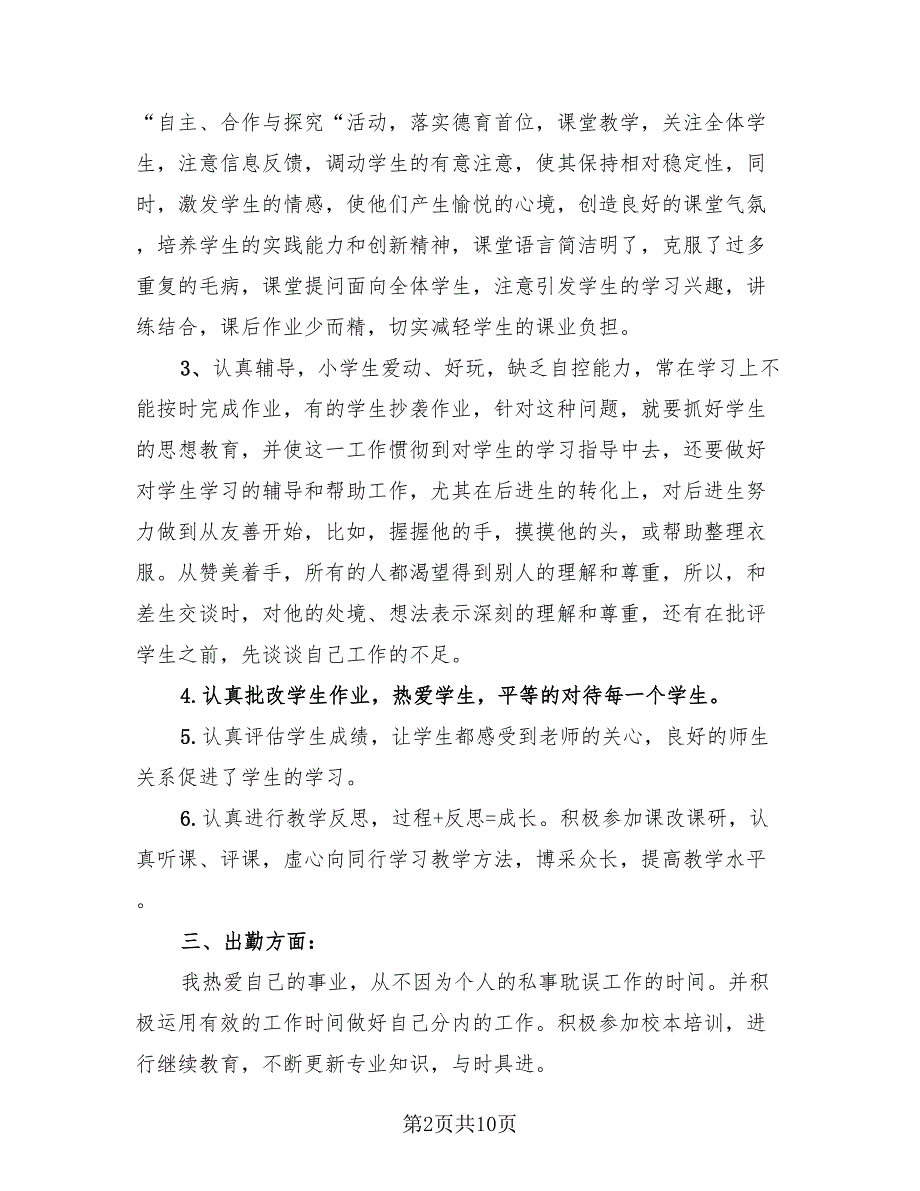 “自主、合作与探究“活动，落实德育首位，课堂教学，关注全体学
生，注意信息反馈，调动学生的有意注意，使其保持相对稳定性，同
时，激发学生的情感，使他们产生愉悦的心境，创造良好的课堂气氛
，培养学生的实践能力和创新精神，课堂语言简洁明了，克服了过多
重复的毛病，课堂提问面向全体学生，注意引发学生的学习兴趣，讲
练结合，课后作业少而精，切实减轻学生的课业负担。
3、认真辅导，小学生爱动、好玩，缺乏自控能力，常在学习上不
能按时完成作业，有的学生抄袭作业，针对这种问题，就要抓好学生
的思想教育，并使这一工作惯彻到对学生的学习指导中去，还要做好
对学生学习的辅导和帮助工作，尤其在后进生的转化上，对后进生努
力做到从友善开始，比如，握握他的手，摸摸他的头，或帮助整理衣
服。从赞美着手，所有的人都渴望得到别人的理解和尊重，所以，和
差生交谈时，对他的处境、想法表示深刻的理解和尊重，还有在批评
学生之前，先谈谈自己工作的不足。
4.认真批改学生作业，热爱学生，平等的对待每一个学生。
5.认真评估学生成绩，让学生都感受到老师的关心，良好的师生
关系促进了学生的学习。
6.认真进行教学反思，过程+反思=成长。积极参加课改课研，认
真听课、评课，虚心向同行学习教学方法，博采众长，提高教学水平
。
三、出勤方面：
我热爱自己的事业，从不因为个人的私事耽误工作的时间。并积
极运用有效的工作时间做好自己分内的工作。积极参加校本培训，进
行继续教育，不断更新专业知识，与时具进。
第2页共10页